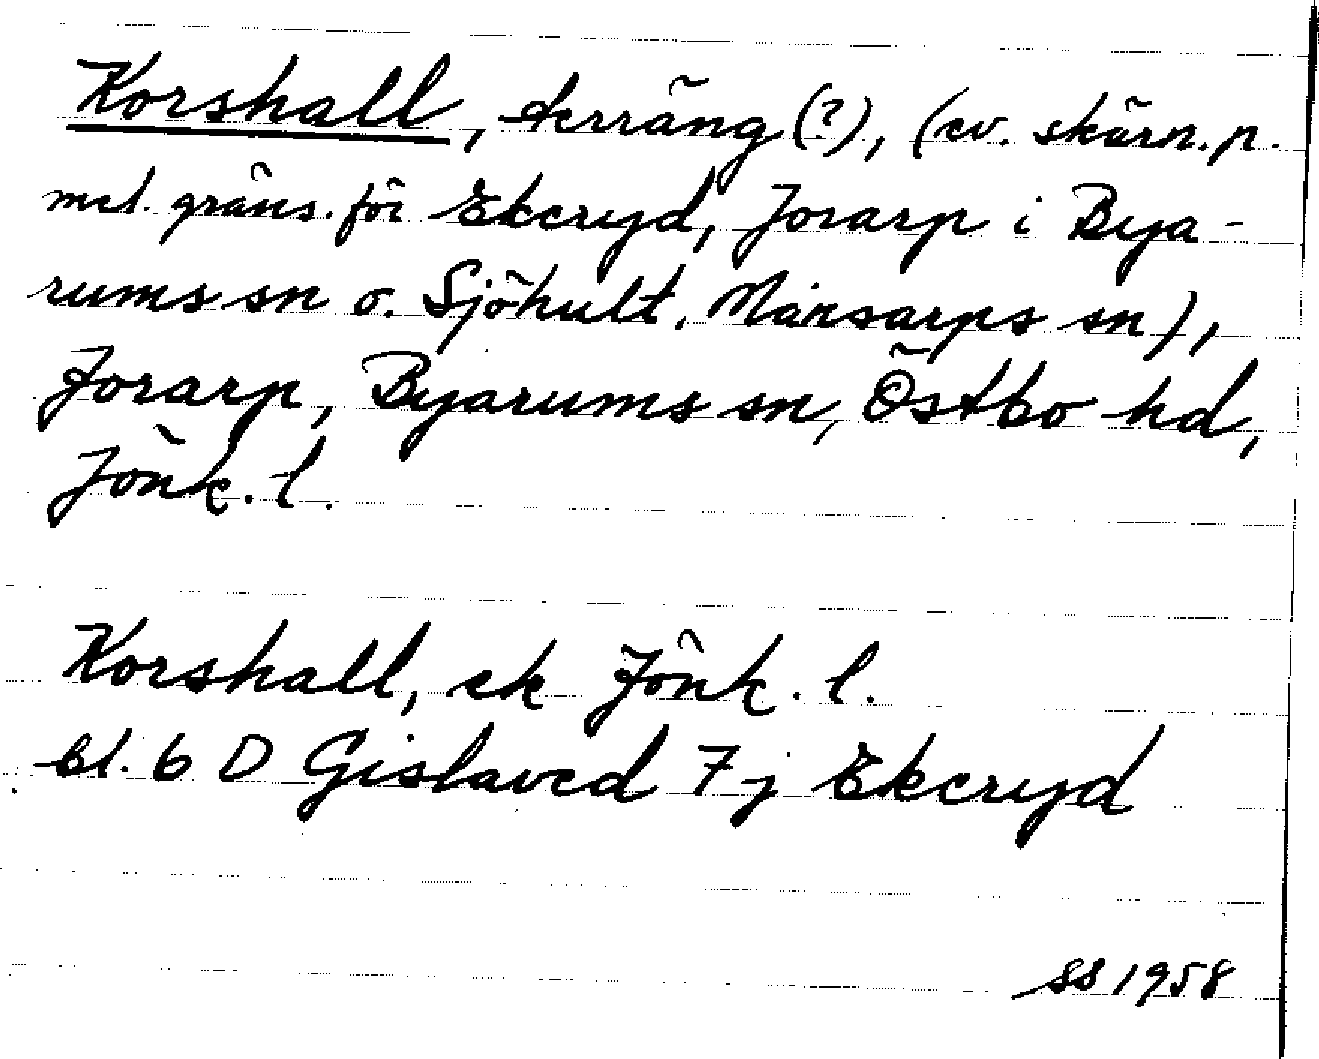 Korshall, terräng (?), (ev. skärn.p.
mel. gräns. för Ekeryd, Jorarp i Bya-
rums sn o. Sjöhult, Månsarps sn),
Jorarp, Byarums sn, Östbo hd,
Jönk. l.
Korshall, ek Jönk. l.
bl. 6 D Gislaved 7 j Ekeryd
SS 1958